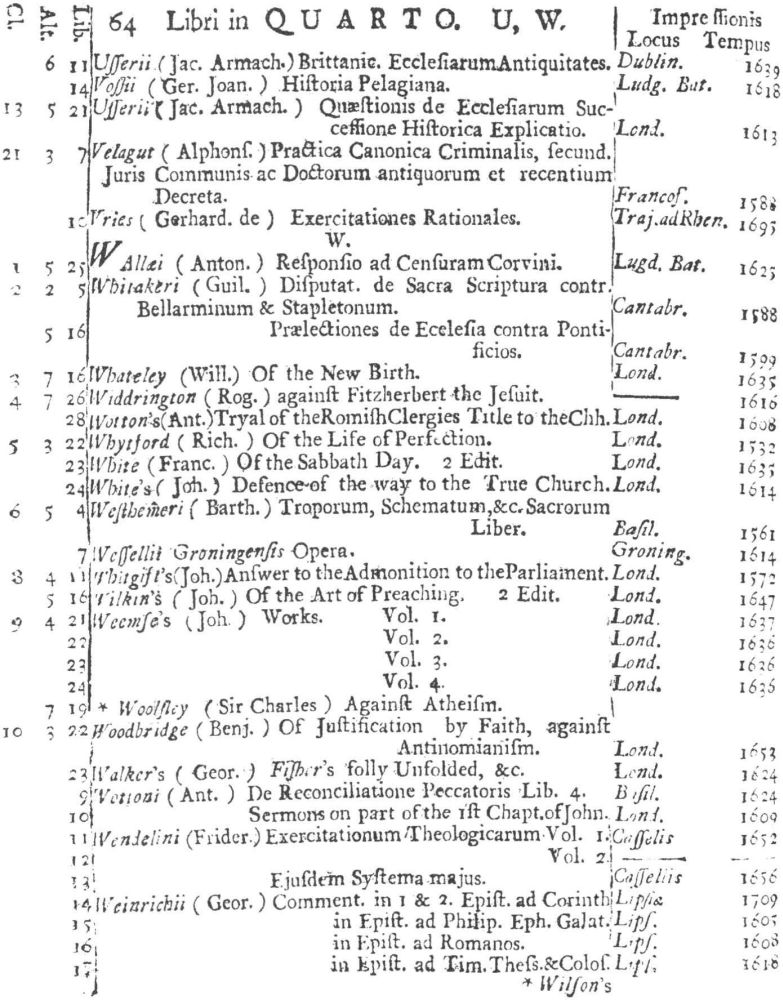 Cl. Alt. Lib. 64 Libri in QUARTO. U, W. Impreſſionis
Locus Tempus
6 11 Uſſerii (Jac. Armach.) Brittanic. Eccleſiarum Antiquitates. Dublin. 1639
14 Voſſii (Ger. Joan.) Hiſtoria Pelagiana. Ludg. Bat. 1618
13 5 21 Uſſerii (Jac. Armach.) Quæſtionis de Eccleſiarum Suc-
ceſſione Hiſtorica Explicatio. Lond. 1613
21 3 7 Velagut (Alphonſ.) Practica Canonica Criminalis, ſecund.
Juris Communis ac Doctorum antiquorum et recentium
Decreta. Francof. 1588
10 Vries (Gerhard. de) Exercitationes Rationales. Traj. ad Rhen. 1695
W.
1 5 25 WAllæi (Anton.) Reſponſio ad Cenſuram Corvini. Lugd. Bat. 1625
2 2 5 Whitakeri (Guil.) Diſputat. de Sacra Scriptura contr.
Bellarminum & Stapletonum. Cantabr. 1588
5 16 Prælectiones de Eccleſia contra Ponti-
ficios. Cantabr. 1599
3 7 16 Whateley (Will.) Of the New Birth. Lond. 1635
4 7 26 Widdrington (Rog.) againſt Fitzherbert the Jeſuit. —— 1616
28 Wotton's (Ant.) Tryal of the Romiſh Clergies Title to the Chh. Lond. 1608
5 3 22 Whytford (Rich.) Of the Life of Perfection. Lond. 1532
23 White (Franc.) Of the Sabbath Day. 2 Edit. Lond. 1635
24 White's (Joh.) Defence of the way to the True Church. Lond. 1614
6 5 4 Weſthemeri (Barth.) Troporum, Schematum, &c. Sacrorum
Liber. Baſil. 1561
7 Weſſellii Groningenſis Opera. Groning. 1614
8 4 11 Whitgift's (Joh.) Anſwer to the Admonition to the Parliament. Lond. 1572
5 16 Wilkin's (Joh.) Of the Art of Preaching. 2 Edit. Lond. 1647
9 4 21 Weemſe's (Joh.) Works. Vol. 1. Lond. 1637
22 Vol. 2. Lond. 1636
23 Vol. 3. Lond. 1636
24 Vol. 4. Lond. 1636
7 19 * Woolſley (Sir Charles) Againſt Atheiſm.
10 3 22 Woodbridge (Benj.) Of Juſtification by Faith, againſt
Antinomianiſm. Lond. 1653
23 Walker's (Geor.) Fiſher's folly Unfolded, &c. Lond. 1624
9 Wottoni (Ant.) De Reconciliatione Peccatoris Lib. 4. Baſil. 1624
10 Sermons on part of the 1ſt Chapt. of John. Lond. 1609
11 Wendelini (Frider.) Exercitationum Theologicarum Vol. 1. Caſſelis 1652
12 Vol. 2. —— ——
13 Ejuſdem Syſtema majus. Caſſellis 1656
14 Weinrichii (Geor.) Comment. in 1 & 2. Epiſt. ad Corinth Lipſiæ 1709
15 in Epiſt. ad Philip. Eph. Galat. Lipſ. 1605
16 in Epiſt. ad Romanos. Lipſ. 1608
17 in Epiſt. ad Tim. Theſs. & Coloſ. Lipſ. 1618
* Wilſon's